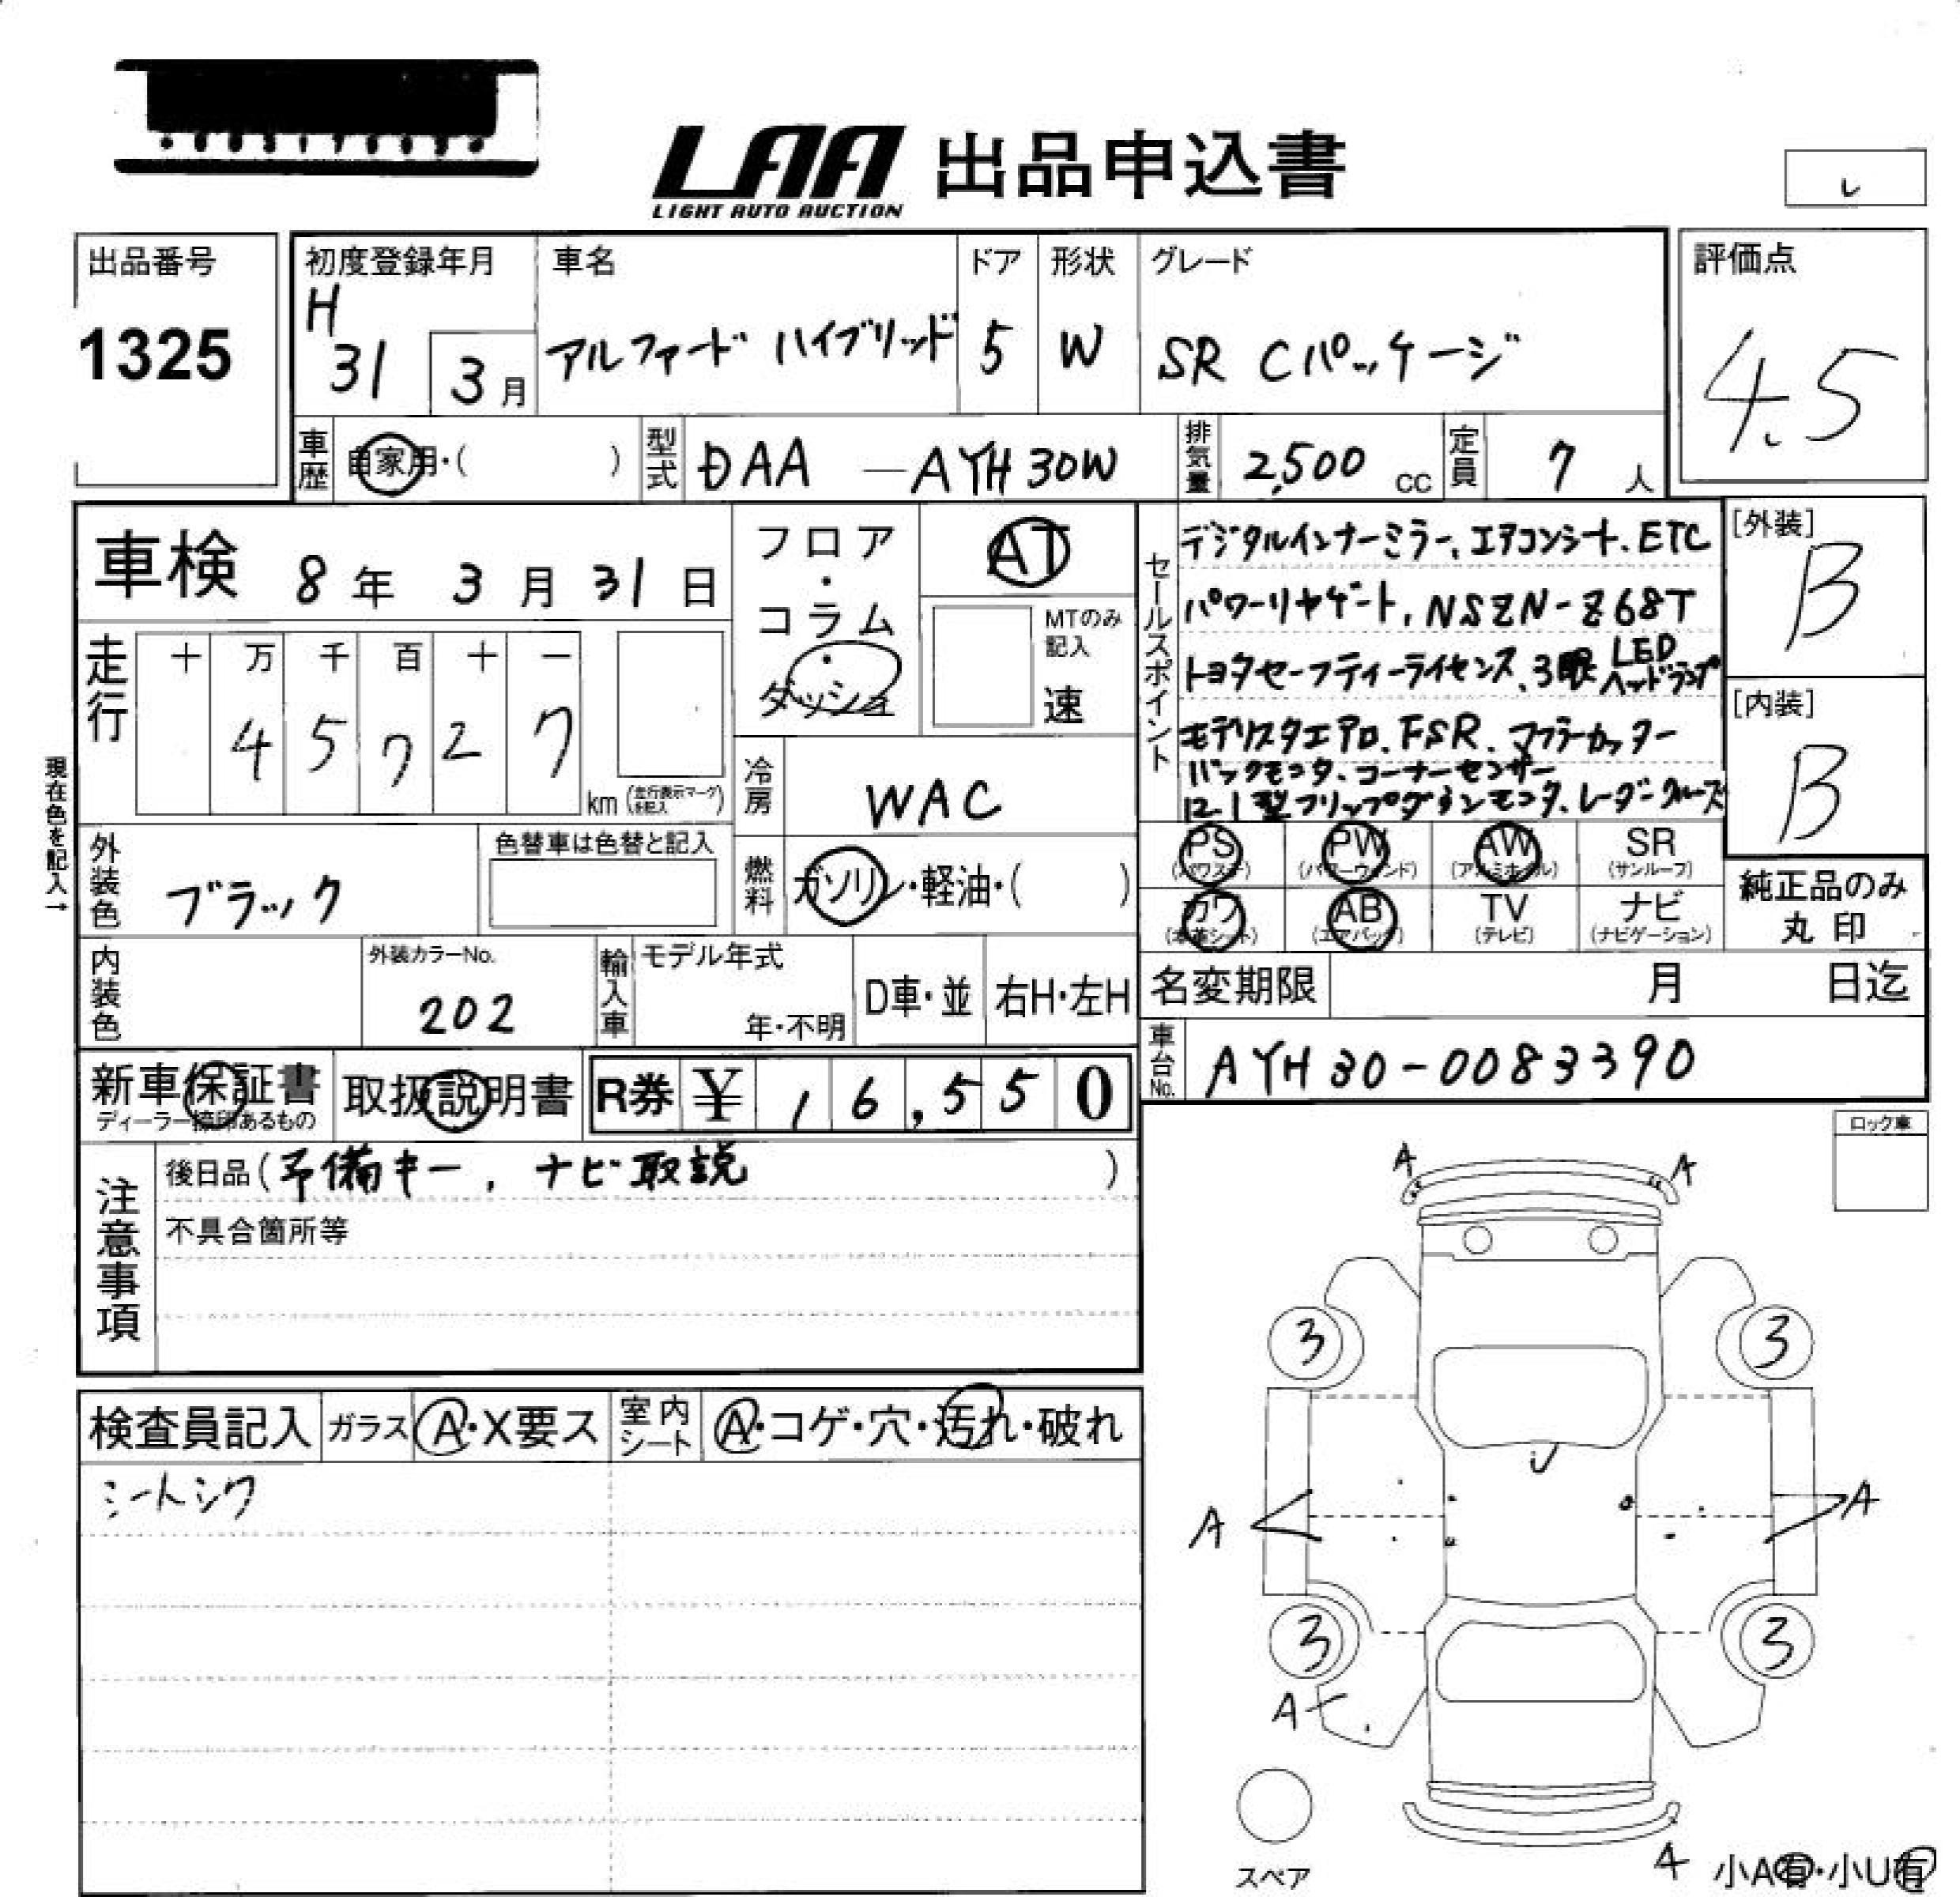 LAA 出品申込書
LIGHT AUTO AUCTION
レ
出品番号
1325
初度登録年月
H
31 3月
車名
アルファード ハイブリッド
ドア
5
形状
W
グレード
SR Cパッケージ
評価点
4.5
車歴 自家用・( )
型式 DAA — AYH30W
排気量 2,500 cc
定員 7 人
車検 8年 3月 31日
フロア・コラム・ダッシュ
AT
MTのみ記入
速
セールスポイント
デジタルインナーミラー、エアコンシート、ETC
パワーリヤゲート、NSZN-Z68T
トヨタセーフティーライセンス、3眼LEDヘッドランプ
モデリスタエアロ、FSR、マフラーカッター
バックモニタ、コーナーセンサー
12.1型フリップダウンモニタ、レーダークルーズ
[外装]
B
[内装]
B
走行
十 万 千 百 十 一
4 5 7 2 7
km (走行表示マークを記入)
現在色を記入→
冷房 WAC
外装色 ブラック
色替車は色替と記入
燃料 ガソリン・軽油・( )
PS (パワステ)
PW (パワーウィンド)
AW (アルミホイル)
SR (サンルーフ)
カワ (本革シート)
AB (エアバック)
TV (テレビ)
ナビ (ナビゲーション)
純正品のみ
丸印
内装色
外装カラーNo.
202
輸入車
モデル年式
年・不明
D車・並
右H・左H
名変期限 月 日迄
車台No. AYH30-0083390
新車保証書
ディーラー捺印あるもの
取扱説明書
R券 ¥ 16,550
ロック車
注意事項
後日品(予備キー、ナビ取説 )
不具合箇所等
検査員記入
ガラス A・X要ス
室内シート A・コゲ・穴・汚れ・破れ
シートシワ
A A
3 3
A A
3 3
A
スペア
A
小A有・小U有